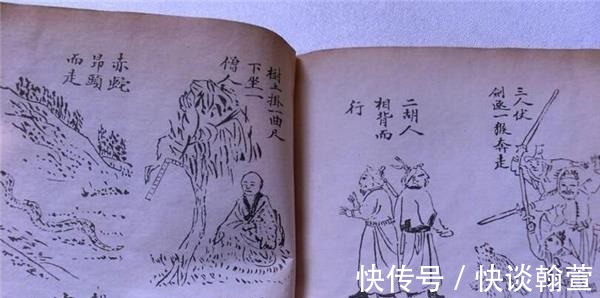 三人伏
劍逐一猴奔走
二胡人
相背而
行
樹上掛一曲尺
下坐一
僧人
赤蛇
昂頭
而走
快传号 / 快谈翰萱